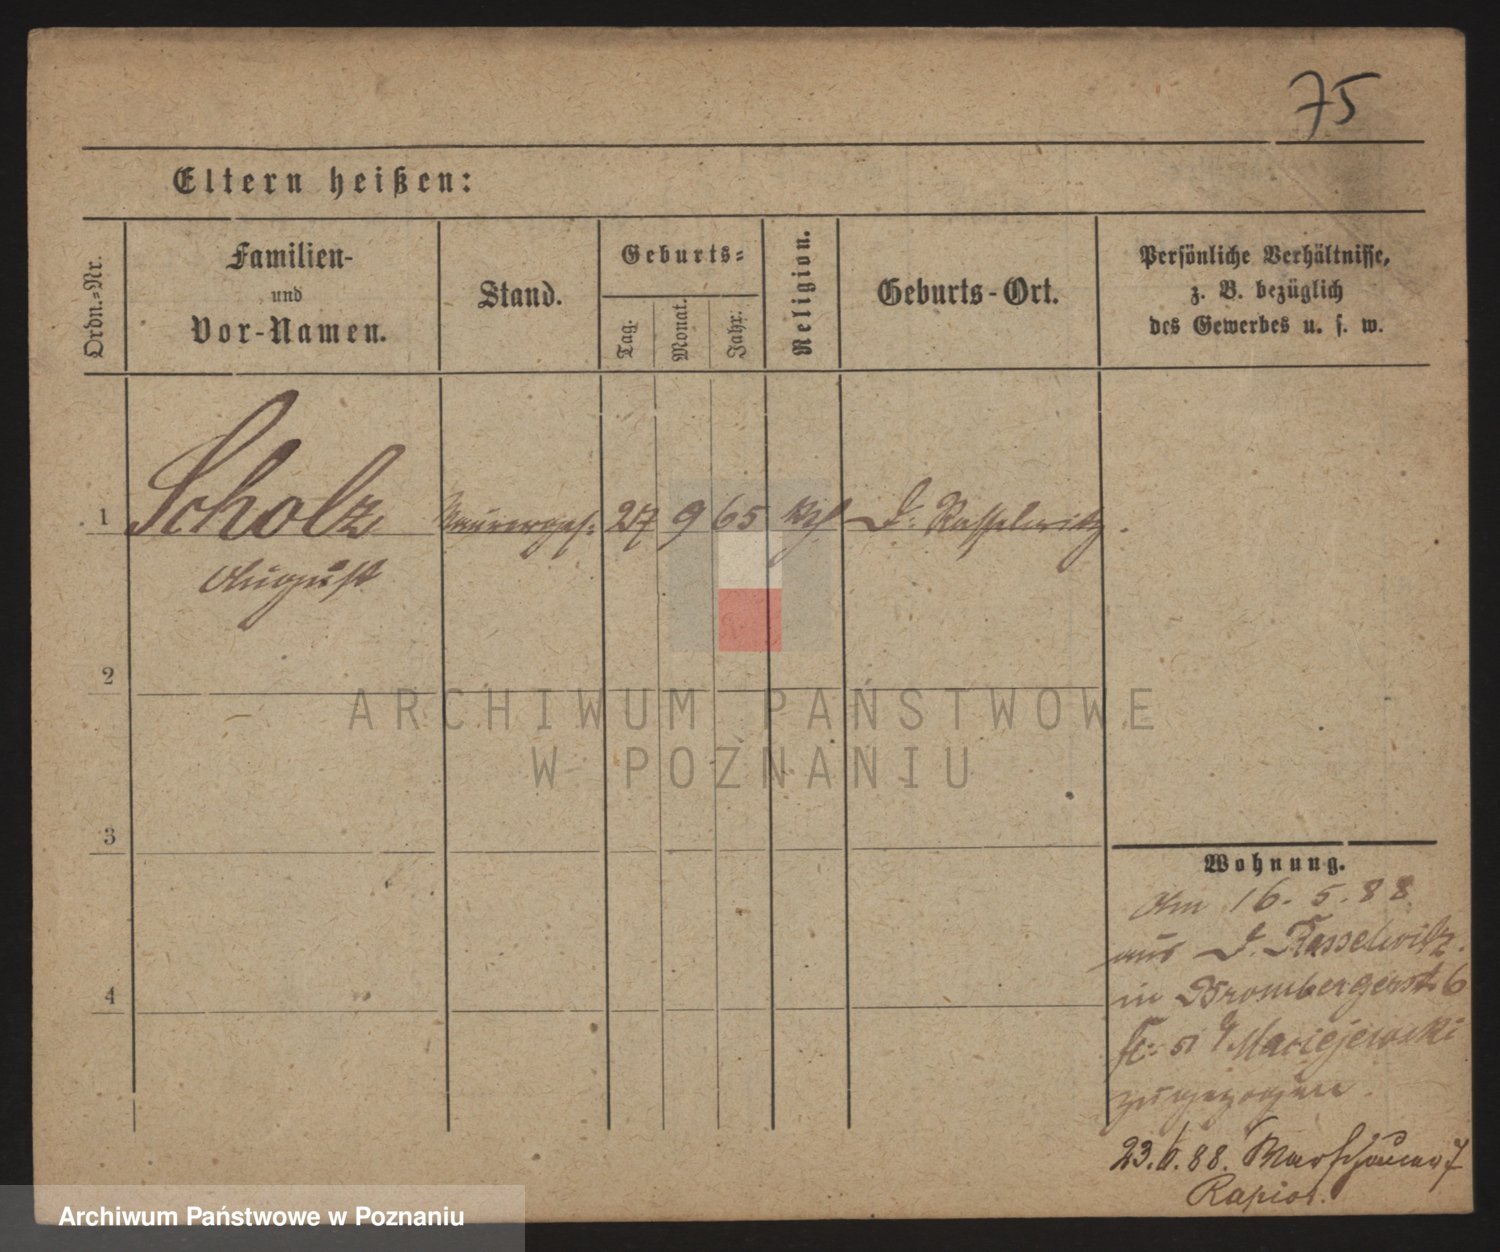 75
Eltern heißen:
Ordn.-Nr.
Familien-
und
Vor-Namen.
Stand.
Geburts-
Tag.
Monat.
Jahr.
Religion.
Geburts-Ort.
Persönliche Verhältnisse,
z. B. bezüglich
des Gewerbes u. s. w.
1 Scholz Maurerges. 27 9 65 kth D. Rasselwitz.
August
2
3
4
Wohnung.
Am 16. 5. 88
aus D. Rasselwitz.
in Brombergerst. 6
Maciejewski
zugezogen.
23. 6. 88. Warschauer 7
Rapior.
ARCHIWUM PAŃSTWOWE
W POZNANIU
Archiwum Państwowe w Poznaniu